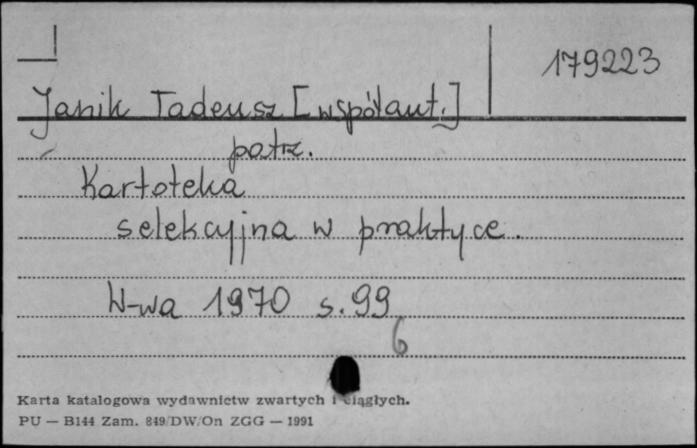 179223
Janik Tadeusz [współaut.]
patrz.
Kartoteka
selekcyjna w praktyce.
W-wa 1970 s.99
6
Karta katalogowa wydawnictw zwartych i ciągłych.
PU — B144 Zam. 849/DW/On ZGG — 1991